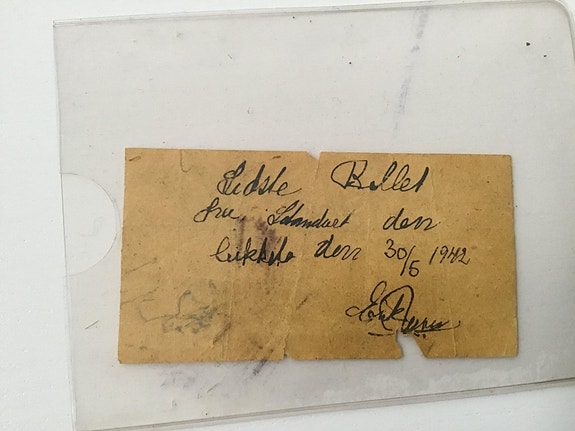 Sidste Billet
fra Standset den
lukkede den 30/5 1942
Erik